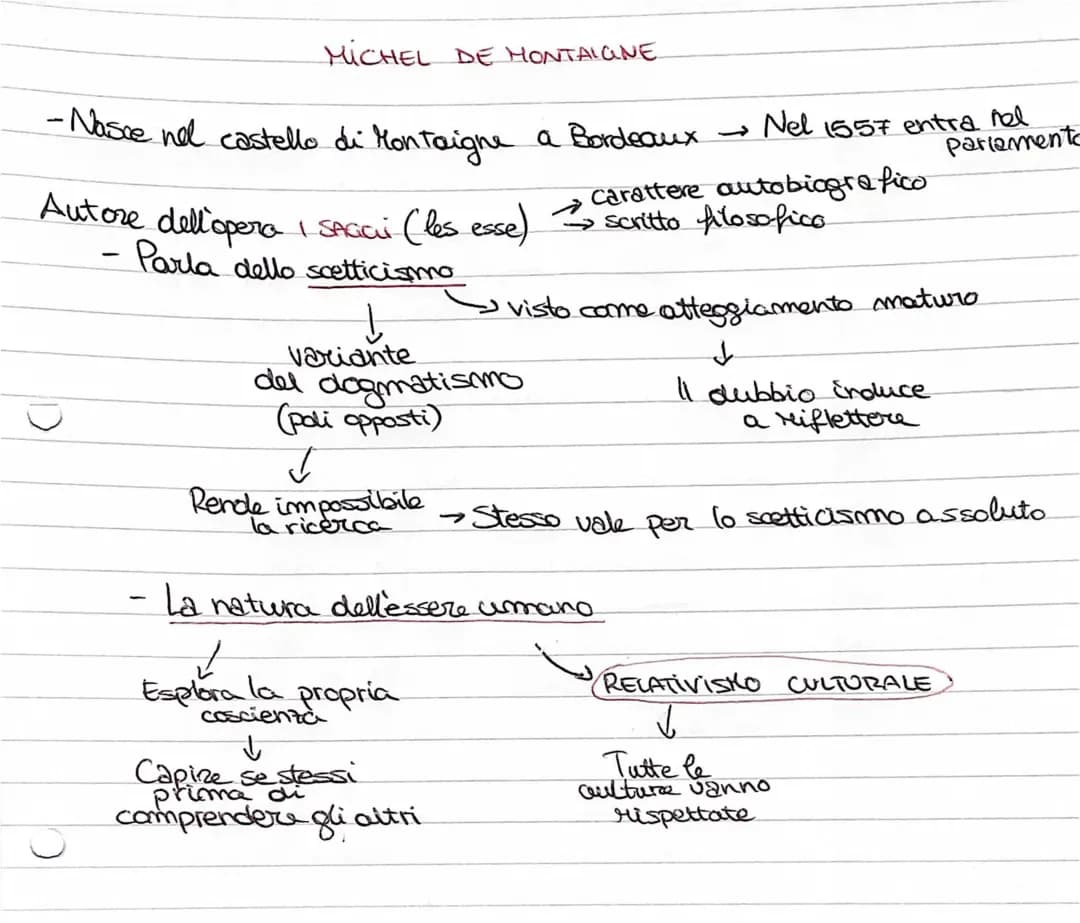 MICHEL DE MONTAIGNE
- Nasce nel castello di Montaigne a Bordeaux → Nel 1557 entra nel
parlamento
→ carattere autobiografico
Autore dell'opera I SAGGI (les esse) → scritto filosofico
- Parla dello scetticismo
↳ visto come atteggiamento maturo
↓
variante ↓
del dogmatismo Il dubbio induce
(poli opposti) a riflettere
↓
Rende impossibile
la ricerca → Stesso vale per lo scetticismo assoluto
- La natura dell'essere umano
Esplora la propria RELATIVISMO CULTURALE
coscienza ↓
↓ Tutte le
Capire se stessi culture vanno
prima di rispettate
comprendere gli altri